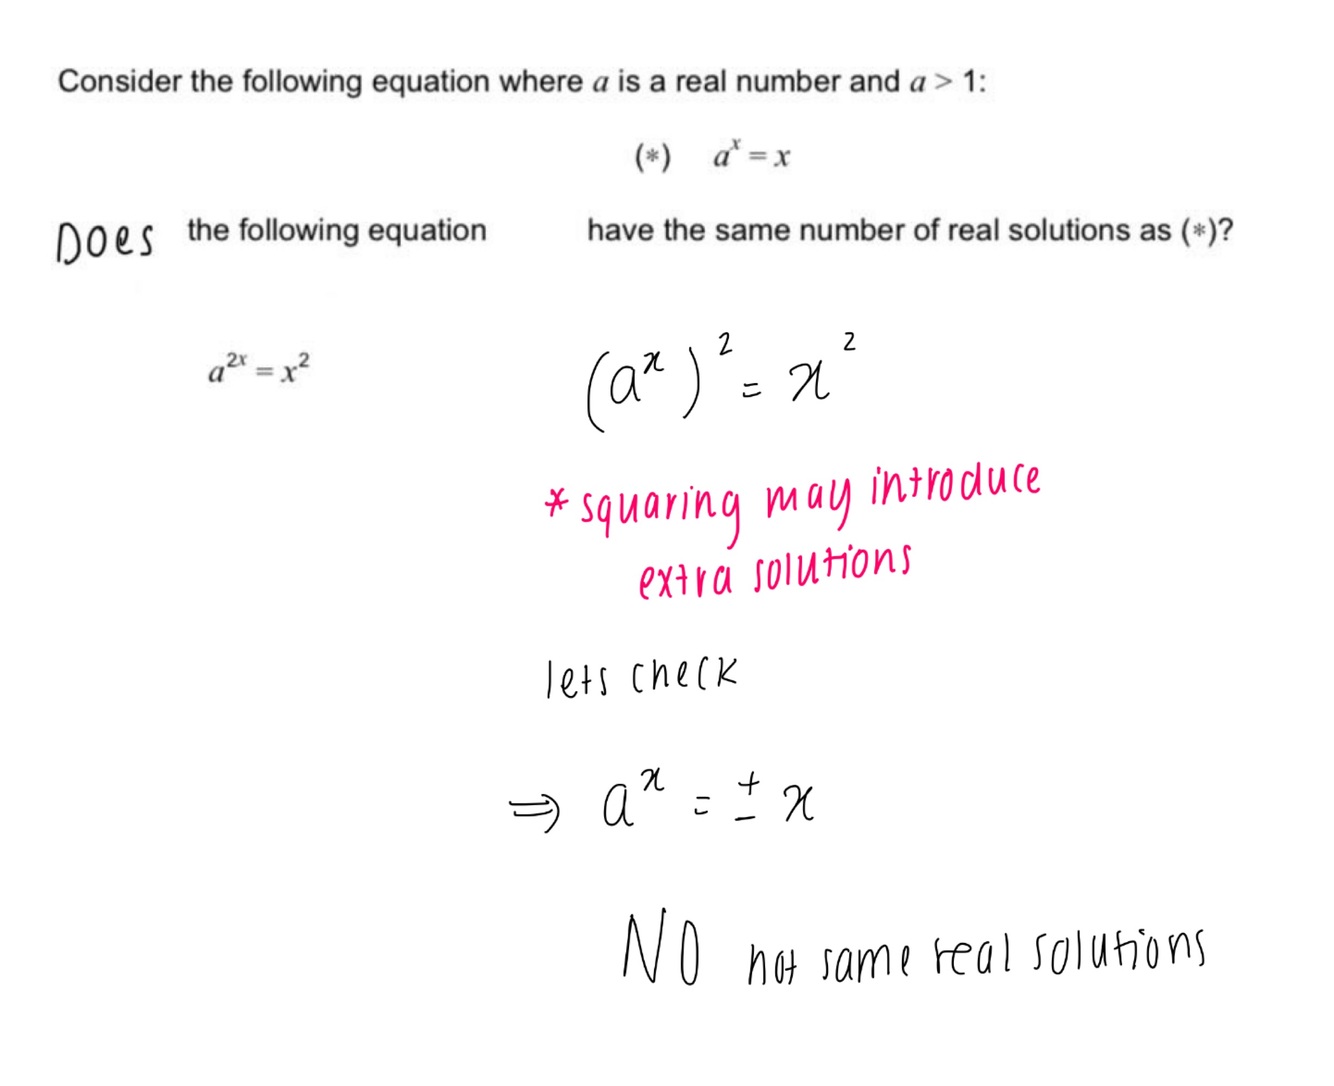 Consider the following equation where a is a real number and a > 1:
(*) aˣ = x
Does the following equation have the same number of real solutions as (*)?
a²ˣ = x²
(aˣ)² = x²
* squaring may introduce
extra solutions
lets check
⇒ aˣ = ± x
NO not same real solutions